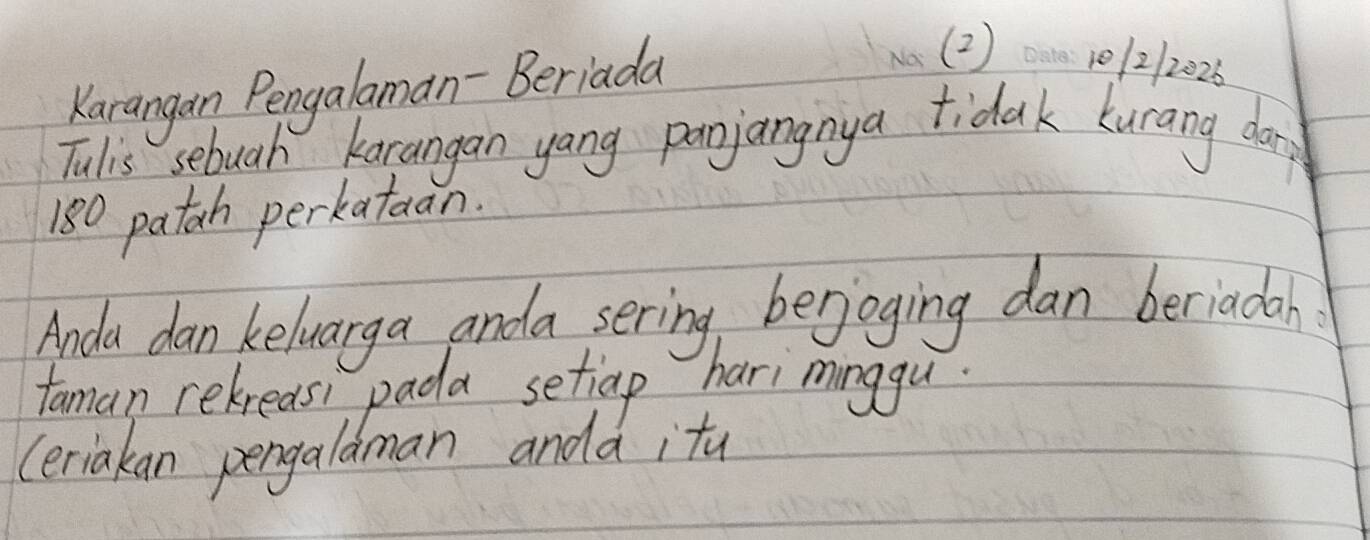 No: (2) Date: 10/2/2026
Karangan Pengalaman - Beriada
Tulis sebuah karangan yang panjangnya tidak kurang
180 patah perkataan.
Anda dan keluarga anda sering berjoging dan beriadah
taman rekreasi pada setiap hari minggu.
Ceriakan pengalaman anda itu